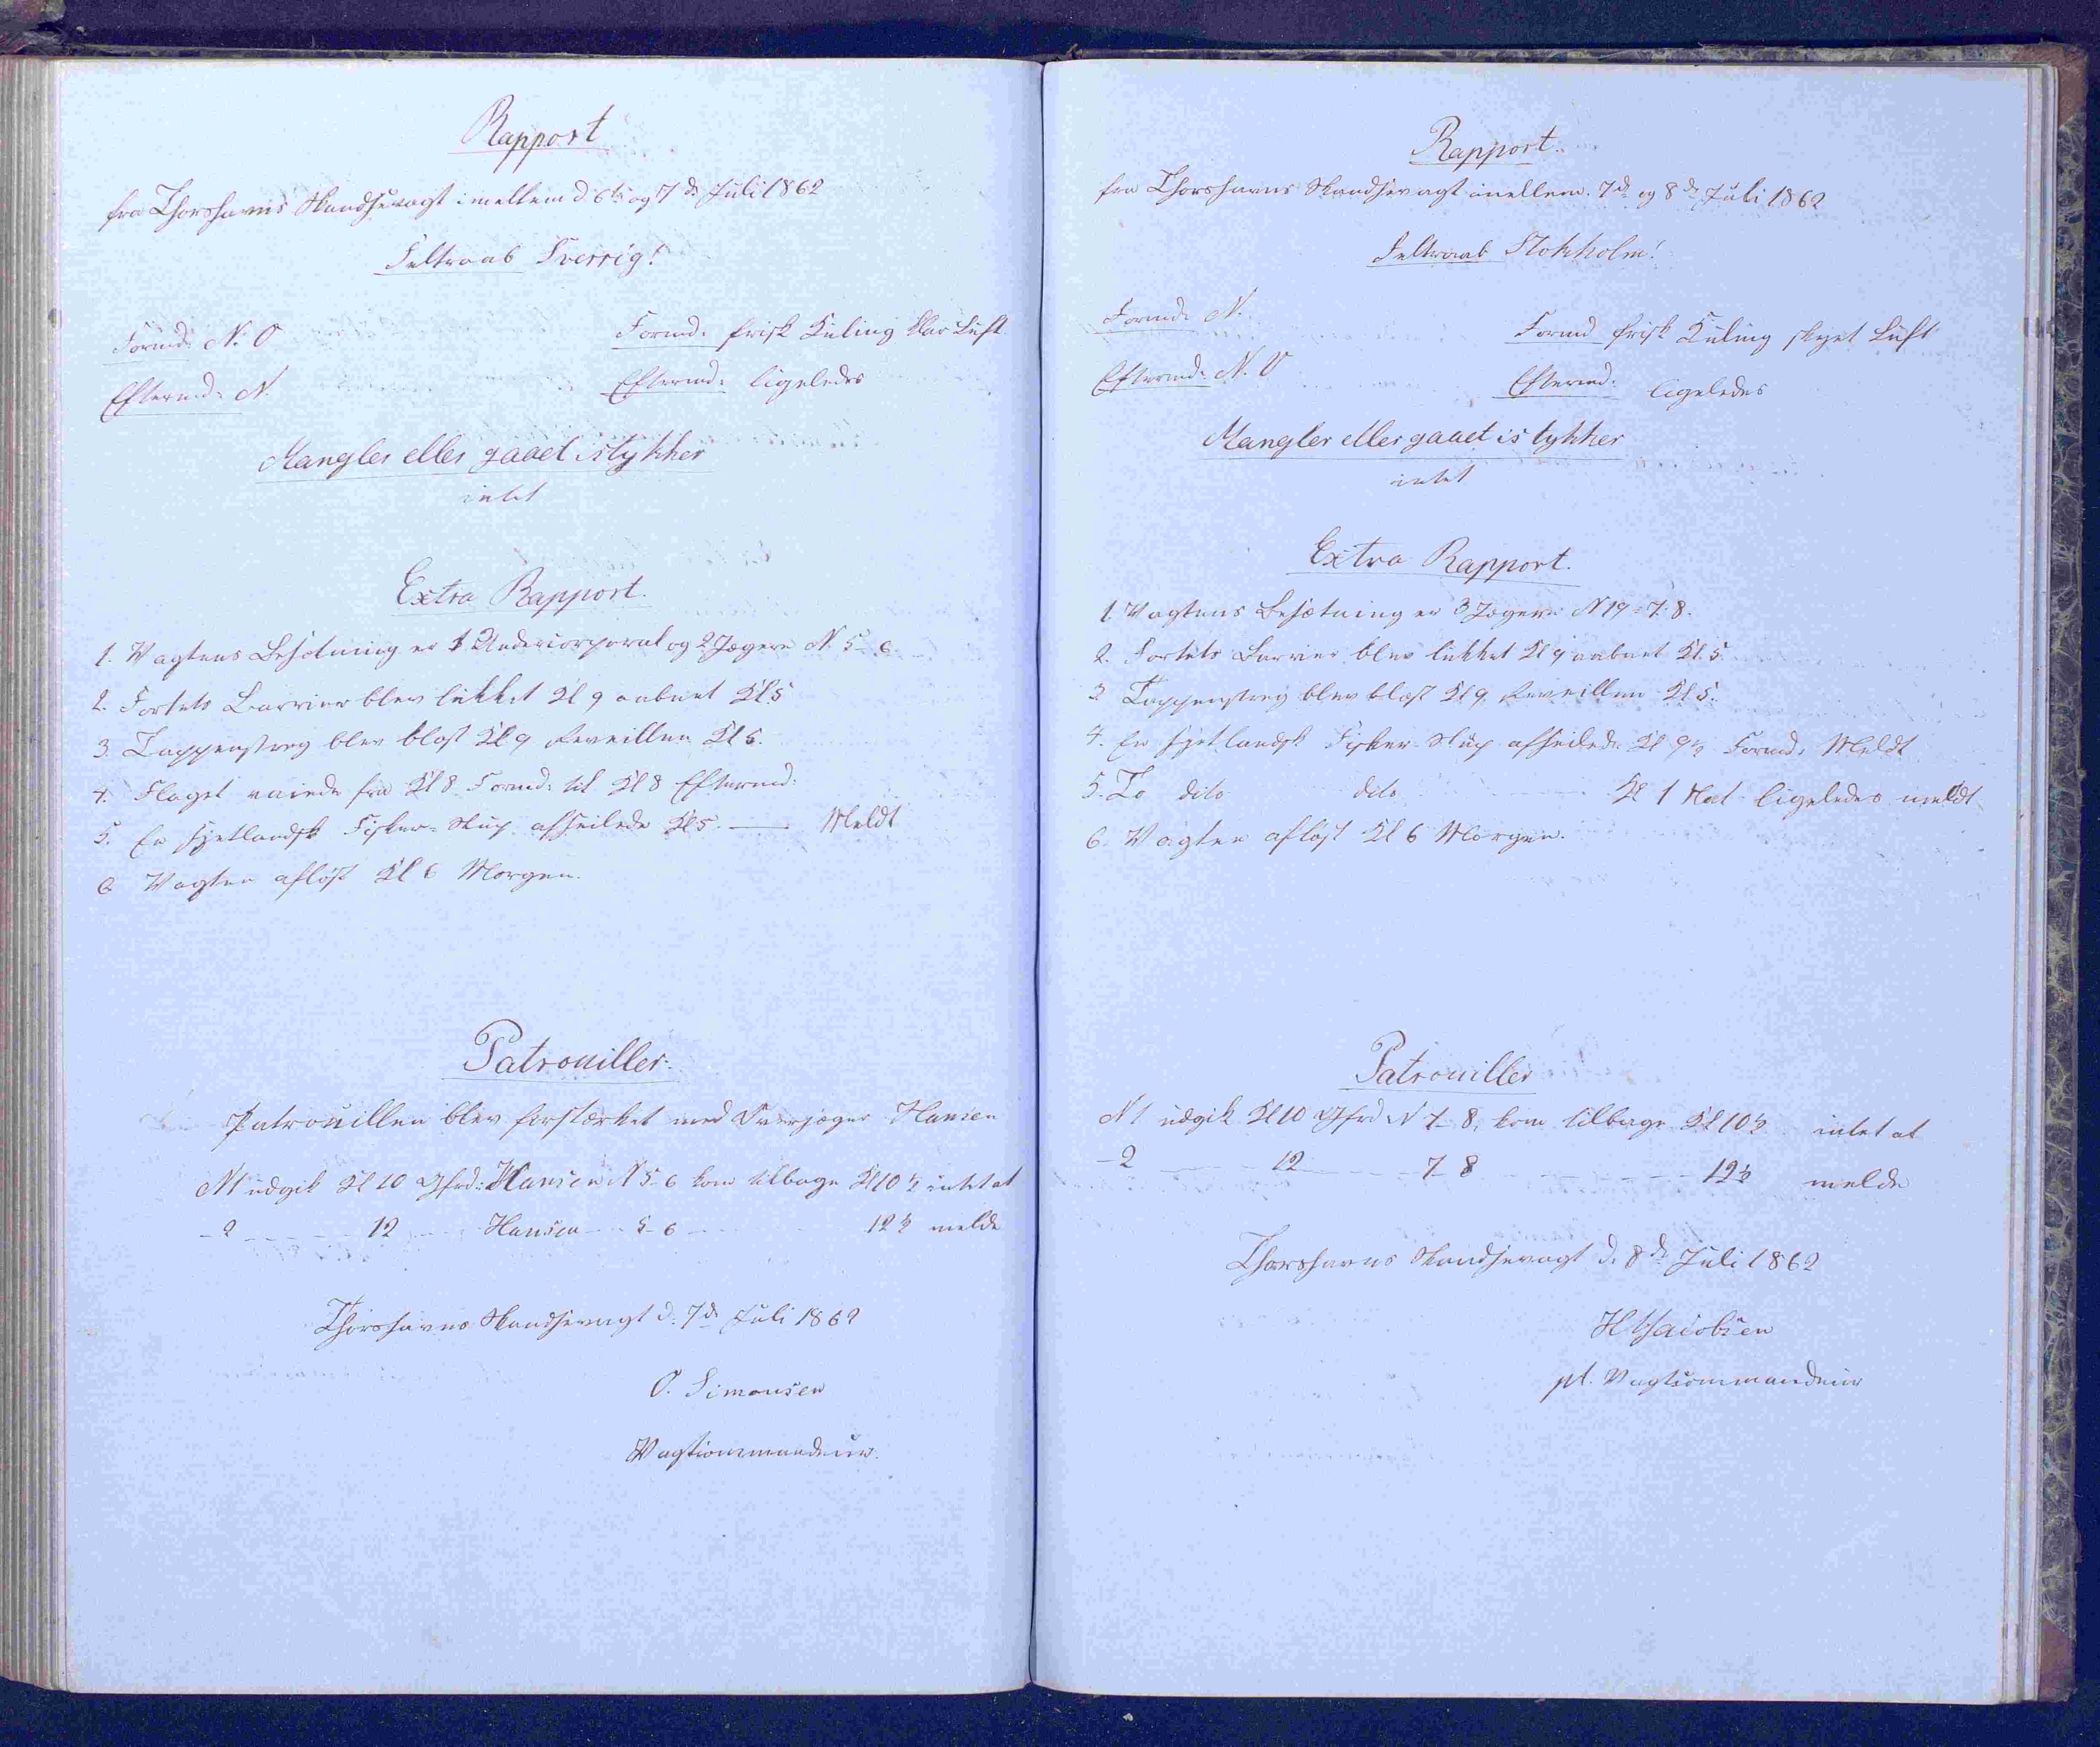 Rapport
fra Thorshavns Skandsevagt imellem d 6te og 7de Juli 1862
Feltraab Sverrig!
Formd: N. O
Formd: frisk Kuling klar Luft
Efterm.d: N.
Eftermd: ligeledes
Mangler eller gaaet istykker
intet
Extra Rapport.
1. Vagtens Besætning er 1 Undercorporal og 2 Jægere N. 5-6.
2. Fortets Barrier blev lukket Kl 9 aabnet Kl 5
3. Tappenstreg blev blæst Kl 9 Reveillen Kl 5.
4. Flaget vaiede fra Kl 8 Formd: til Kl 8 Eftermd:
5. En hjetlandsk Fisker-Slup afseilede Kl 5. — Meldt
6 Vagten afløst Kl 6 Morgen.
Patrouiller.
Patrouillen blev forstærket med Overjæger Hansen
N1 udgik Kl 10 Gfrd: Hansen N 5-6 kom tilbage Kl 10½ intet at
- 2 - - - - 12 - - - Hansen - - 5-6 - - 12½ melde
Thorshavns Skandsevagt d. 7de Juli 1862
O. Simonsen
Vagtcommandeur.
Rapport.
fra Thorshavns Skandsevagt imellem. 7de og 8de Juli 1862
Feltraab Stokholm!
Formd: N.
Formd frisk Kuling skyet Luft
Eftermd: N. O
Eftermd: ligeledes
Mangler eller gaaet istykker
intet
Extra Rapport.
1. Vagtens Besætning er 3 Jægere N 19-7-8.
2. Fortets Barrier blev lukket Kl 9 aabnet Kl. 5.
3 Tappenstreg blev blæst Kl 9, Reveillen Kl 5.
4. En hjetlandsk Fisker-Slup afseilede Kl 9½ Formd: Meldt
5. To dito dito — Kl 1 Nat ligeledes meldt
6. Vagten afløst Kl 6 Morgen.
Patrouiller
N1 udgik Kl 10 Gfrd N 7-8, kom tilbage Kl 10½ intet at
- 2 - - - 12 - - - 7-8 - - - - 12½ melde
Thorshavns Skandsevagt d. 8de Juli 1862
Jacobsen
pt. Vagtcommandeur